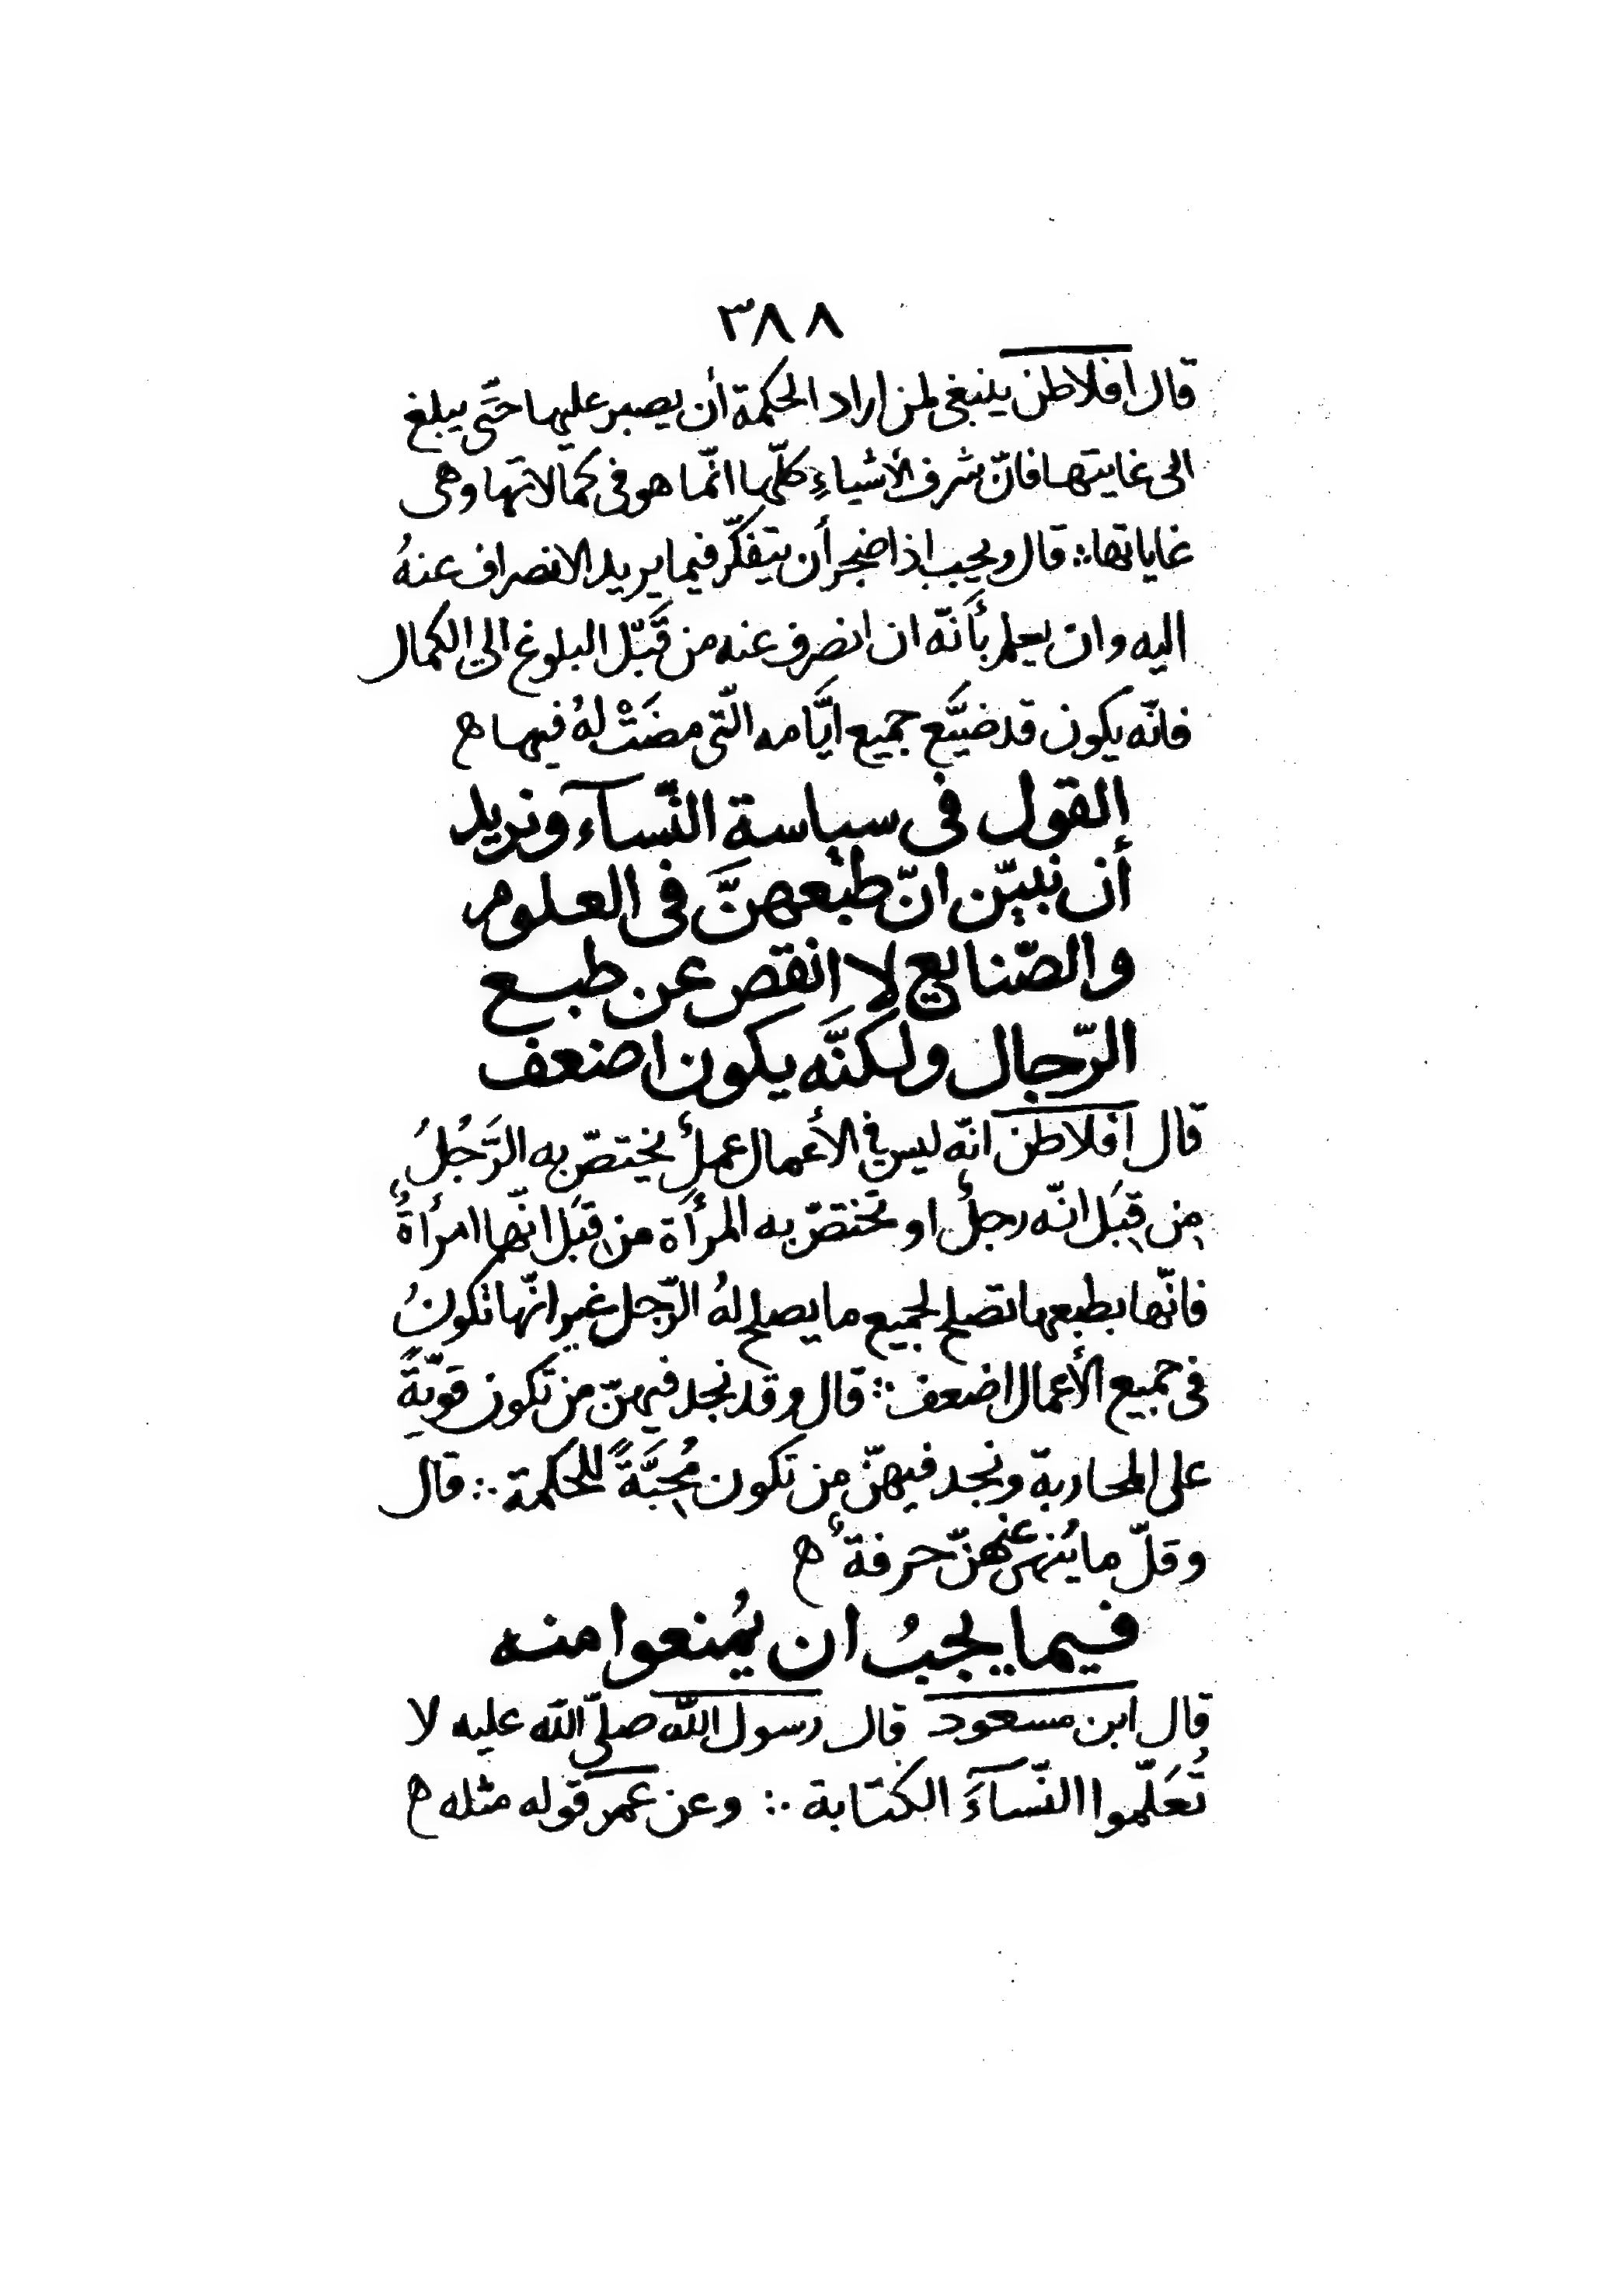 ٣٨٨
قال افلاطن ينبغى لمن اراد الحكمة أن يصبر عليها حَتَّى يبلغ
الى غايتها فانّ شرف الأشياءِ كلّها انّما هو فى كمالاتها وهى
غاياتها ؞ قال ويجب اذا ضجر أن يتفكّر فيما يريد الانصراف عنهُ
اليه وان يعلم بأَنّه ان انصرف عنه من قَبْل البلوغ الى الكمال
فانّه يكون قد ضيَّع جميع ايَّامه الّتى مضَتْ لهُ فيها ه
القول فى سياسة النّسآء ونريد
أن نبيّن انّ طبْعهنَّ فى العلوم
والصّنايع لا انقص عن طبع
الرّجال ولكنَّه يكون اضعف
قال افلاطن انّه ليس فى الأعمال عملٌ يختصّ به الرَّجُلُ
مِن قِبَل انّه رجلٌ او تختصّ به المرأة من قِبَل انّها امرأةٌ
فانّها بطبعها تصلح لجميع ما يصلح لهُ الرّجل غير انّها تكونُ
فى جميع الأعمال اضعف ؞ قال وقد نجد فيهنّ من تكون قويّةً
على المحاربة ونجد فيهنّ من تكون مُحِبَّةً للحكمة ؞ قال
وقلّ ما يُنهى عنهنّ حرفةٌ ه
فيما يجبُ ان يُمنعوا منه
قال ابن مسعود قال رسول اللّه صلّى اللّه عليه لا
تُعَلّموا النّسآءَ الكتابة ؞ وعن عمر قوله مثله ه